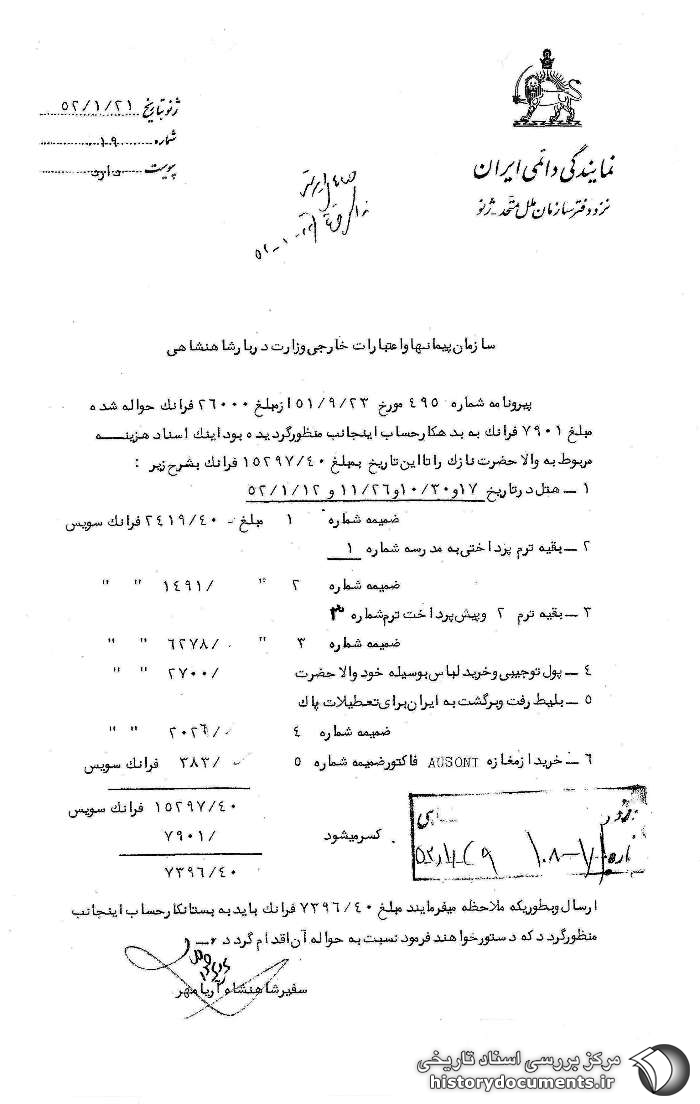 نمایندگی دائمی ایران
نزد دفتر سازمان ملل متحد - ژنو
ژنو بتاریخ ۵۲/۱/۲۱
شماره ۱۰۹
پیوست دارد
۵۲-۱-
سازمان پیمانها و اعتبارات خارجی وزارت دربار شاهنشاهی
پیرو نامه شماره ۴۹۵ مورخ ۵۱/۹/۲۳ از مبلغ ۲۶۰۰۰ فرانك حواله شده
مبلغ ۷۹۰۱ فرانك به بدهکار حساب اینجانب منظور گردیده بود اینك اسناد هزینه
مربوط به والاحضرت نازك را تا این تاریخ بمبلغ ۱۵۲۹۷/۴۰ فرانك بشرح زیر :
۱ ــ هتل در تاریخ ۱۷ و ۱۰/۳۰ و ۱۱/۲۶ و ۵۲/۱/۱۲
ضمیمه شماره ۱ مبلغ - ۲۴۱۹/۴۰ فرانك سویس
۲ ــ بقیه ترم پرداختی به مدرسه شماره ۱
ضمیمه شماره ۲ " ۱۴۹۱/ " "
۳ ــ بقیه ترم ۲ و پیش پرداخت ترم شماره ۳
ضمیمه شماره ۳ " ۶۲۷۸/۰ " "
۴ ــ پول توجیبی و خرید لباس بوسیله خود والاحضرت ۲۷۰۰/ " "
۵ ــ بلیط رفت و برگشت به ایران برای تعطیلات پاك
ضمیمه شماره ۴ ۲۰۲۶/۰ " "
۶ ــ خرید از مغازه AUSONT فاکتور ضمیمه شماره ۵ ۳۸۳/۰ فرانك سویس
۱۵۲۹۷/۴۰ فرانك سویس
کسر میشود ۷۹۰۱/
۷۳۹۶/۴۰
۱۰۸-۷
ارسال و بطوریکه ملاحظه میفرمایند مبلغ ۷۳۹۶/۴۰ فرانك باید به بستانکار حساب اینجانب
منظور گردد که دستور خواهند فرمود نسبت به حواله آن اقدام گردد
سفیر شاهنشاه آریامهر
مرکز بررسی اسناد تاریخی
historydocuments.ir